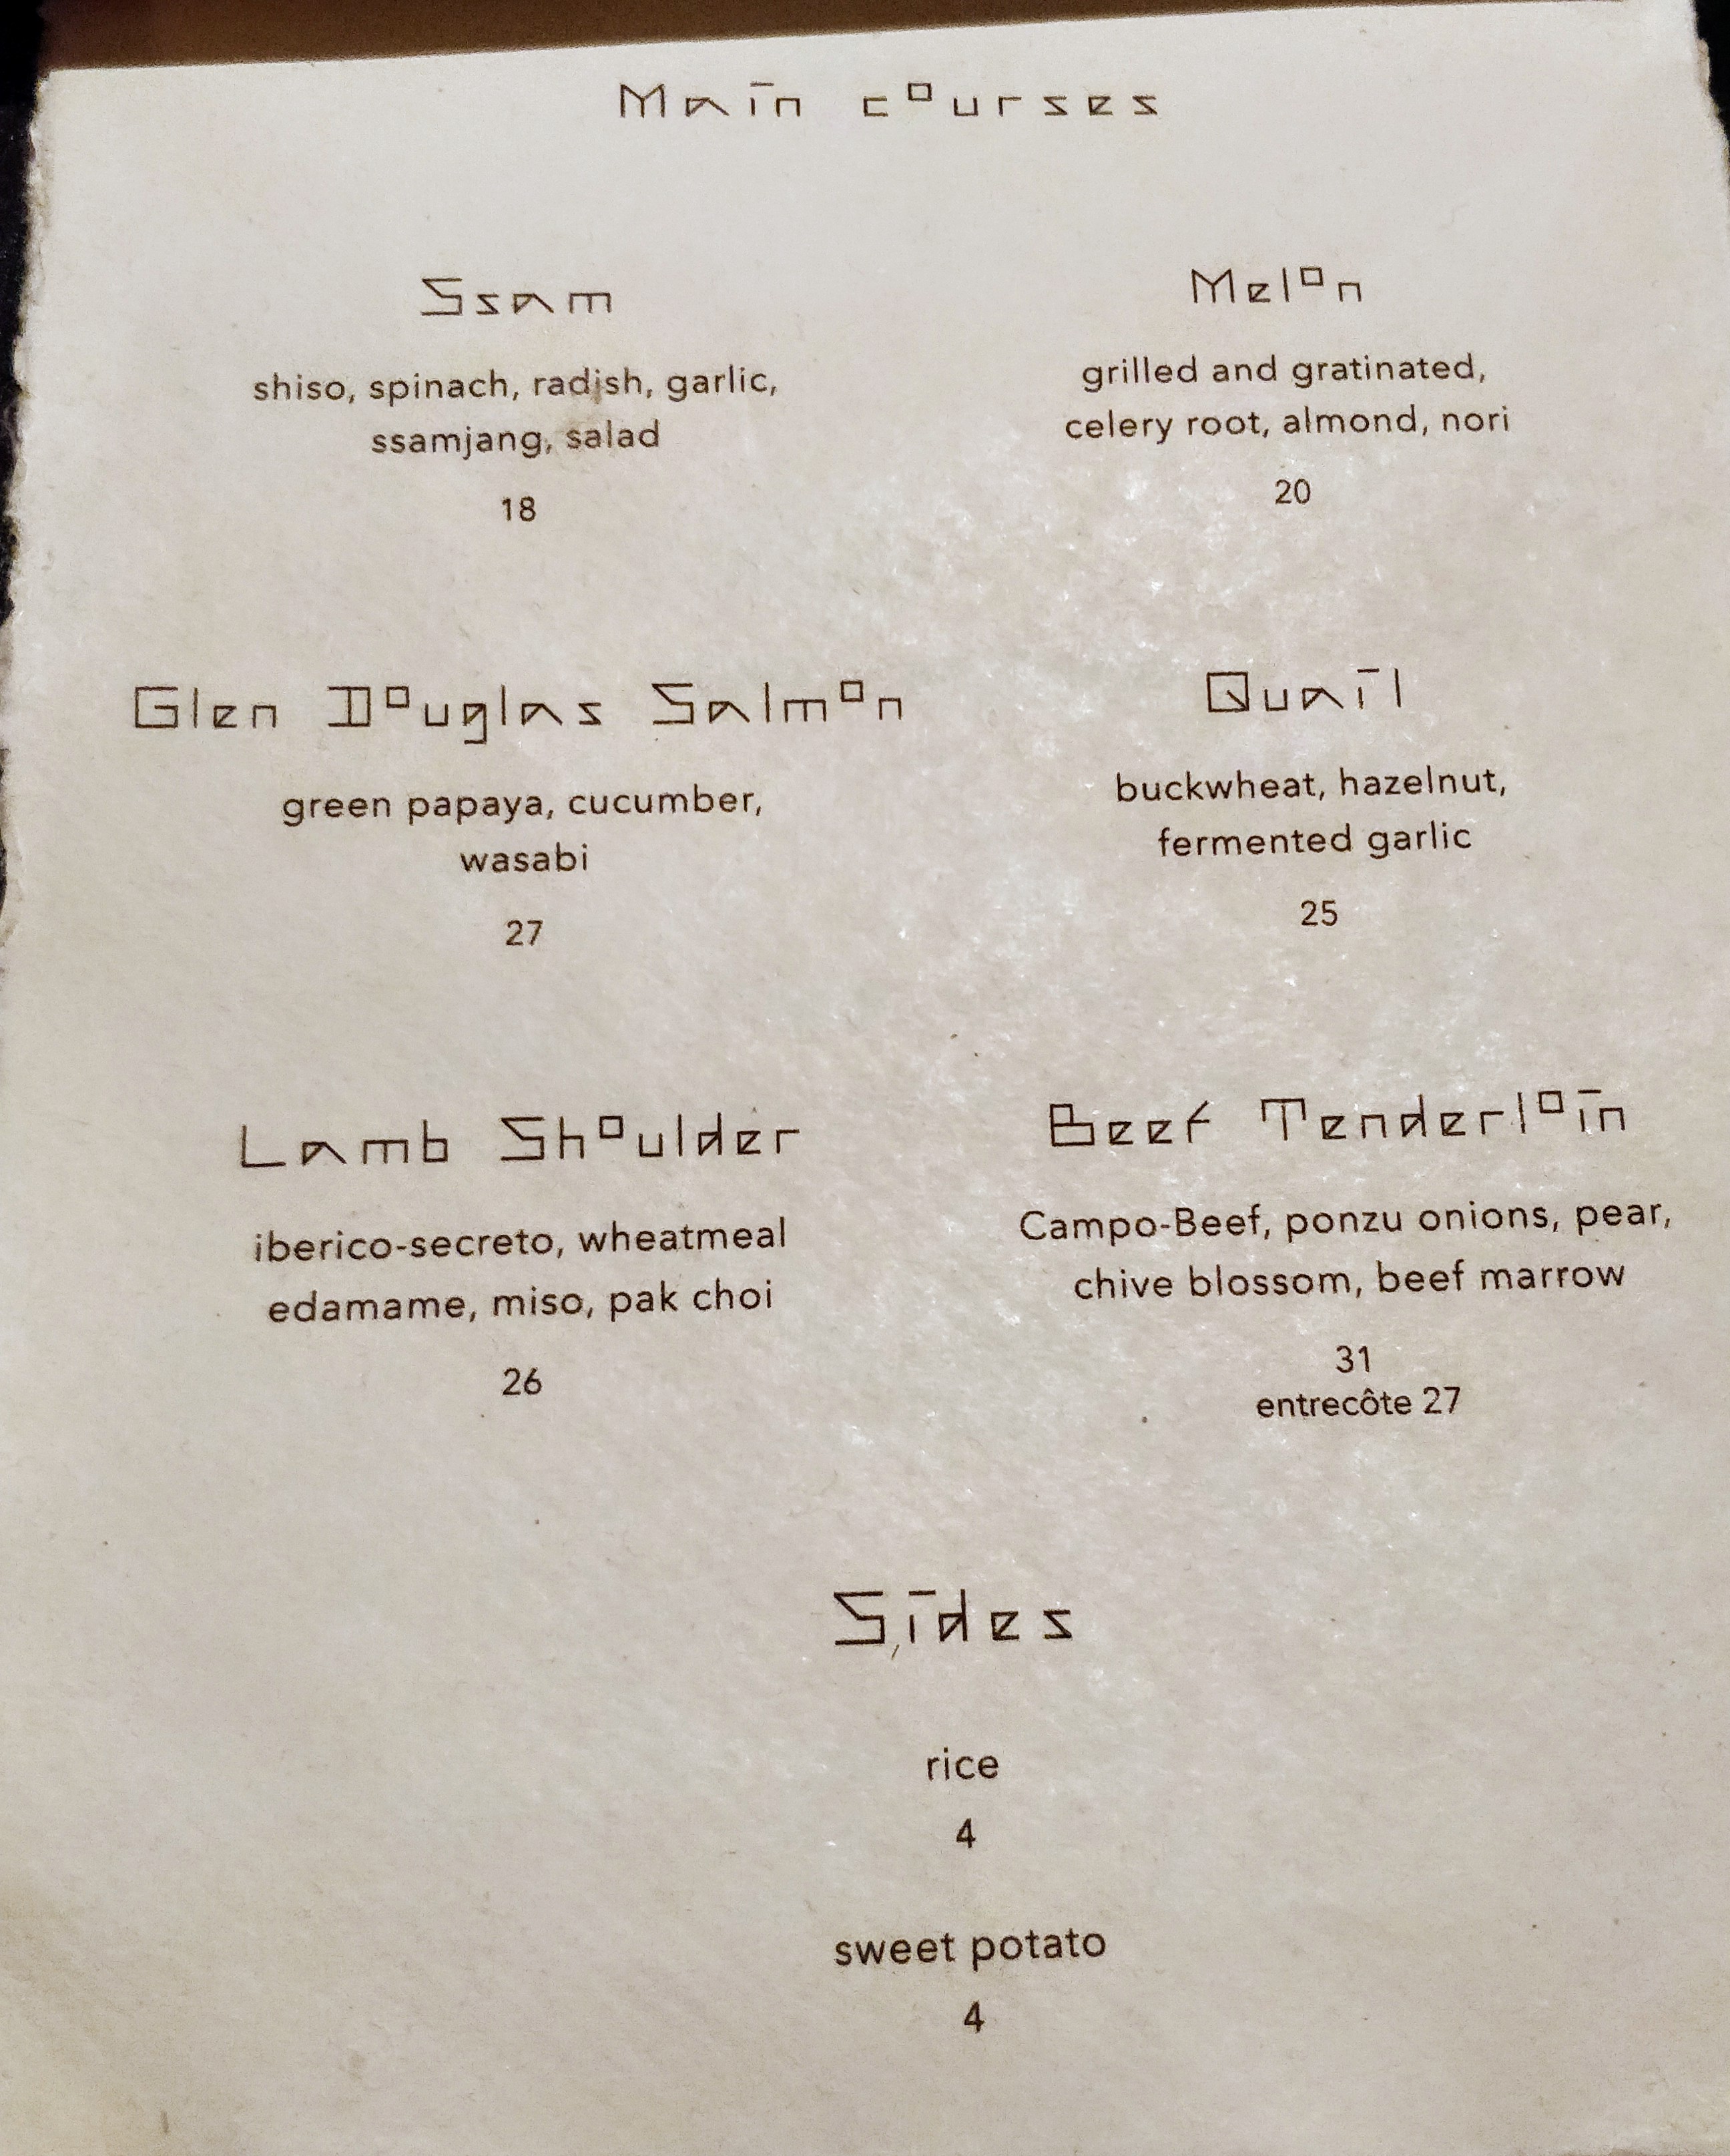 Main courses
Ssam
shiso, spinach, radish, garlic,
ssamjang, salad
18
Melon
grilled and gratinated,
celery root, almond, nori
20
Glen Douglas Salmon
green papaya, cucumber,
wasabi
27
Quail
buckwheat, hazelnut,
fermented garlic
25
Lamb Shoulder
iberico-secreto, wheatmeal
edamame, miso, pak choi
26
Beef Tenderloin
Campo-Beef, ponzu onions, pear,
chive blossom, beef marrow
31
entrecôte 27
Sides
rice
4
sweet potato
4